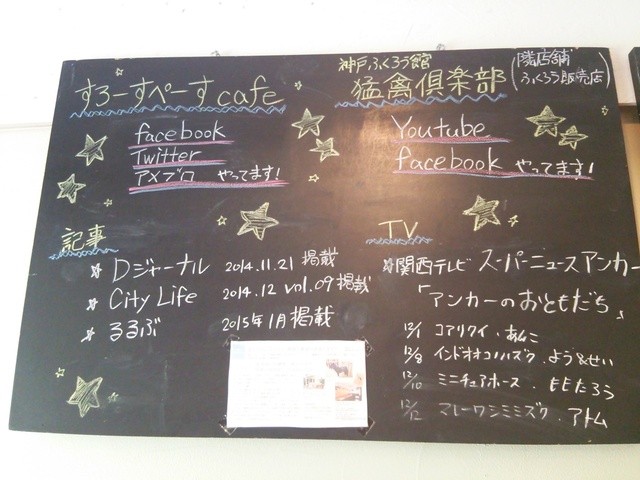 すろーすぺーす cafe
facebook
Twitter
アメブロ やってます!
記事
Dジャーナル 2014.11.21 掲載
City Life 2014.12 vol.09 掲載
るるぶ 2015年1月掲載
神戸ふくろう館
猛禽倶楽部
(隣店舗
ふくろう販売店)
Youtube
facebook やってます!
TV
関西テレビ スーパーニュースアンカー
「アンカーのおともだち」
12/1 コアリクイ・あんこ
12/8 インドオオコノハズク・よう&せい
12/10 ミニチュアホース・ももたろう
12/12 マレーワシミミズク・アトム